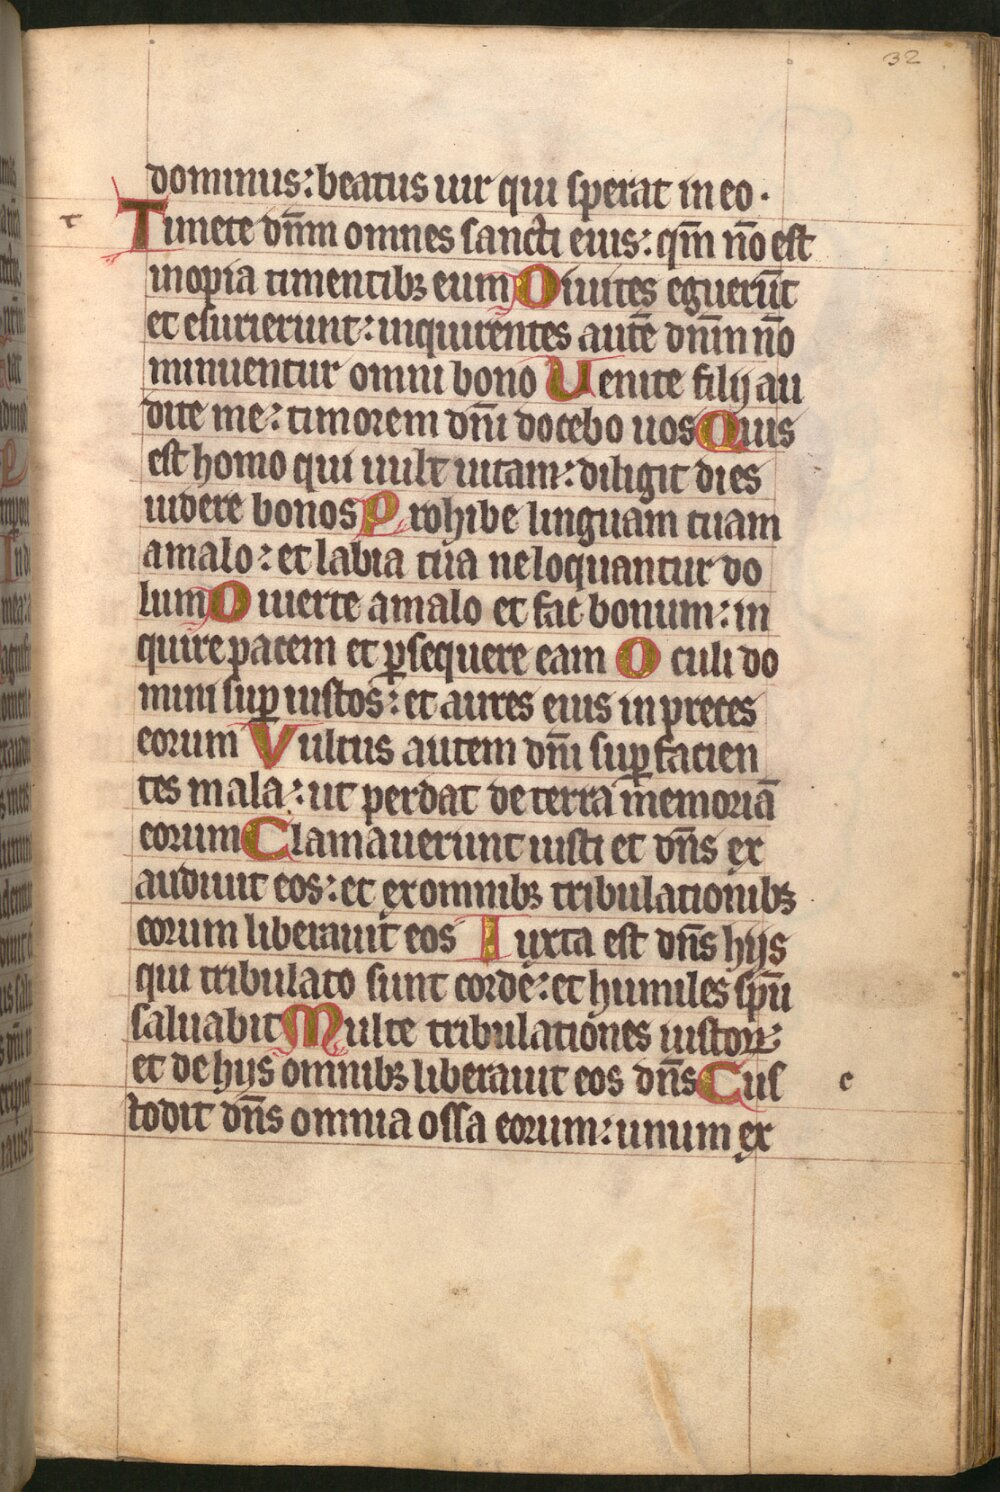 32
dominus: beatus uir qui sperat in eo.
Timete dn̄m omnes sancti eius: qm̄ nō est
inopia timentibꝫ eum Diuites eguerūt
et esurierunt: inquirentes autē dn̄m nō
minuentur omni bono Uenite filij au
dite me: timorem dn̄i docebo uos Quis
est homo qui uult uitam: diligit dies
uidere bonos Prohibe linguam tuam
amalo: et labia tua ne loquantur do
lum Diuerte amalo et fac bonum: in
quire pacem et ꝑsequere eam Oculi do
mini suꝑ iustos: et aures eius in preces
eorum Vultus autem dn̄i suꝑ facien
tes mala: ut perdat de terra memoriā
eorum Clamauerunt iusti et dn̄s ex
audiuit eos: et ex omnibꝫ tribulationibꝫ
eorum liberauit eos Iuxta est dn̄s hijs
qui tribulato sunt corde: et humiles sp̄u
saluabit Multe tribulationes iustoꝝ:
et de hijs omnibꝫ liberauit eos dn̄s Cus
todit dn̄s omnia ossa eorum: unum ex